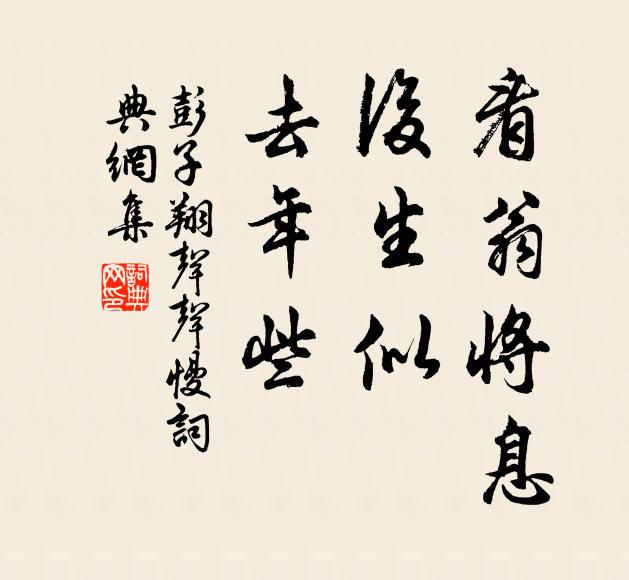 看翁將息
後生似
去年些
彭子翔聲聲慢詞
典網集
詞典網印